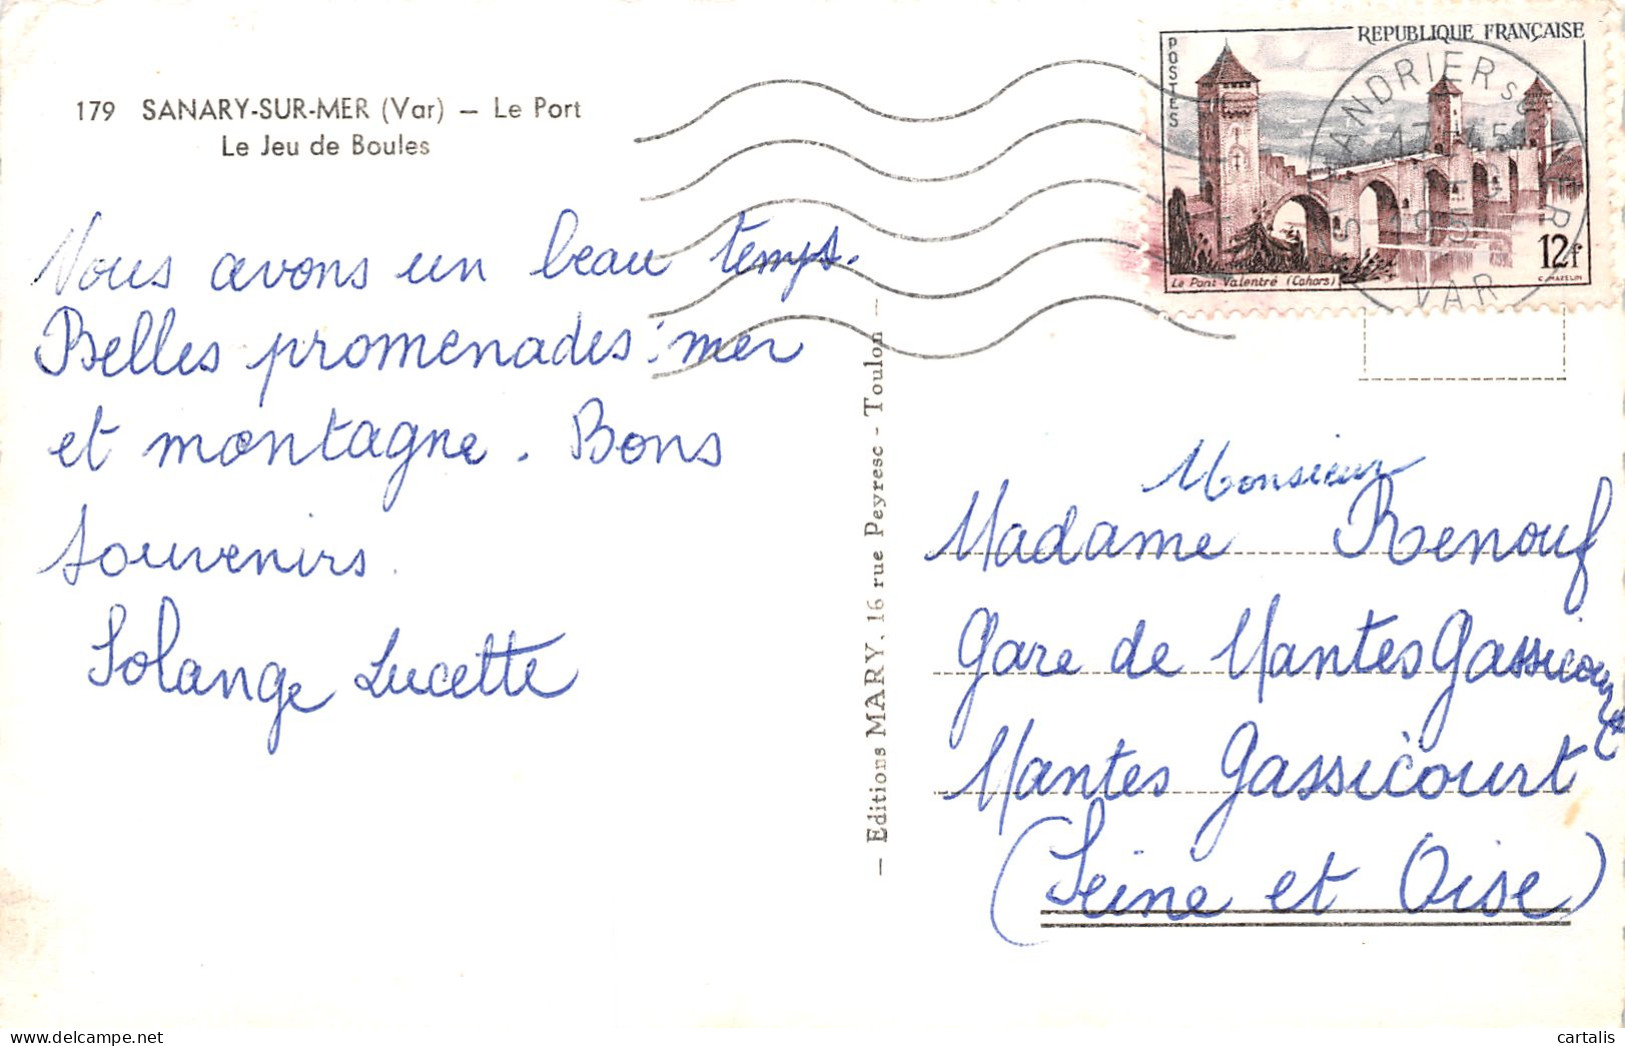 179 SANARY-SUR-MER (Var) — Le Port
Le Jeu de Boules
Nous avons un beau temps.
Belles promenades : mer
et montagne. Bons
souvenirs.
Solange Lucette
— Editions MARY, 16 rue Peyresc - Toulon —
REPUBLIQUE FRANÇAISE
POSTES
Le Pont Valentré (Cahors)
12f
C. MAZELIN
ST MANDRIER S
17-45
VAR
Monsieur
Madame Renouf
Gare de Mantes Gassicourt
Mantes Gassicourt
(Seine et Oise)
cartalis
delcampe.net